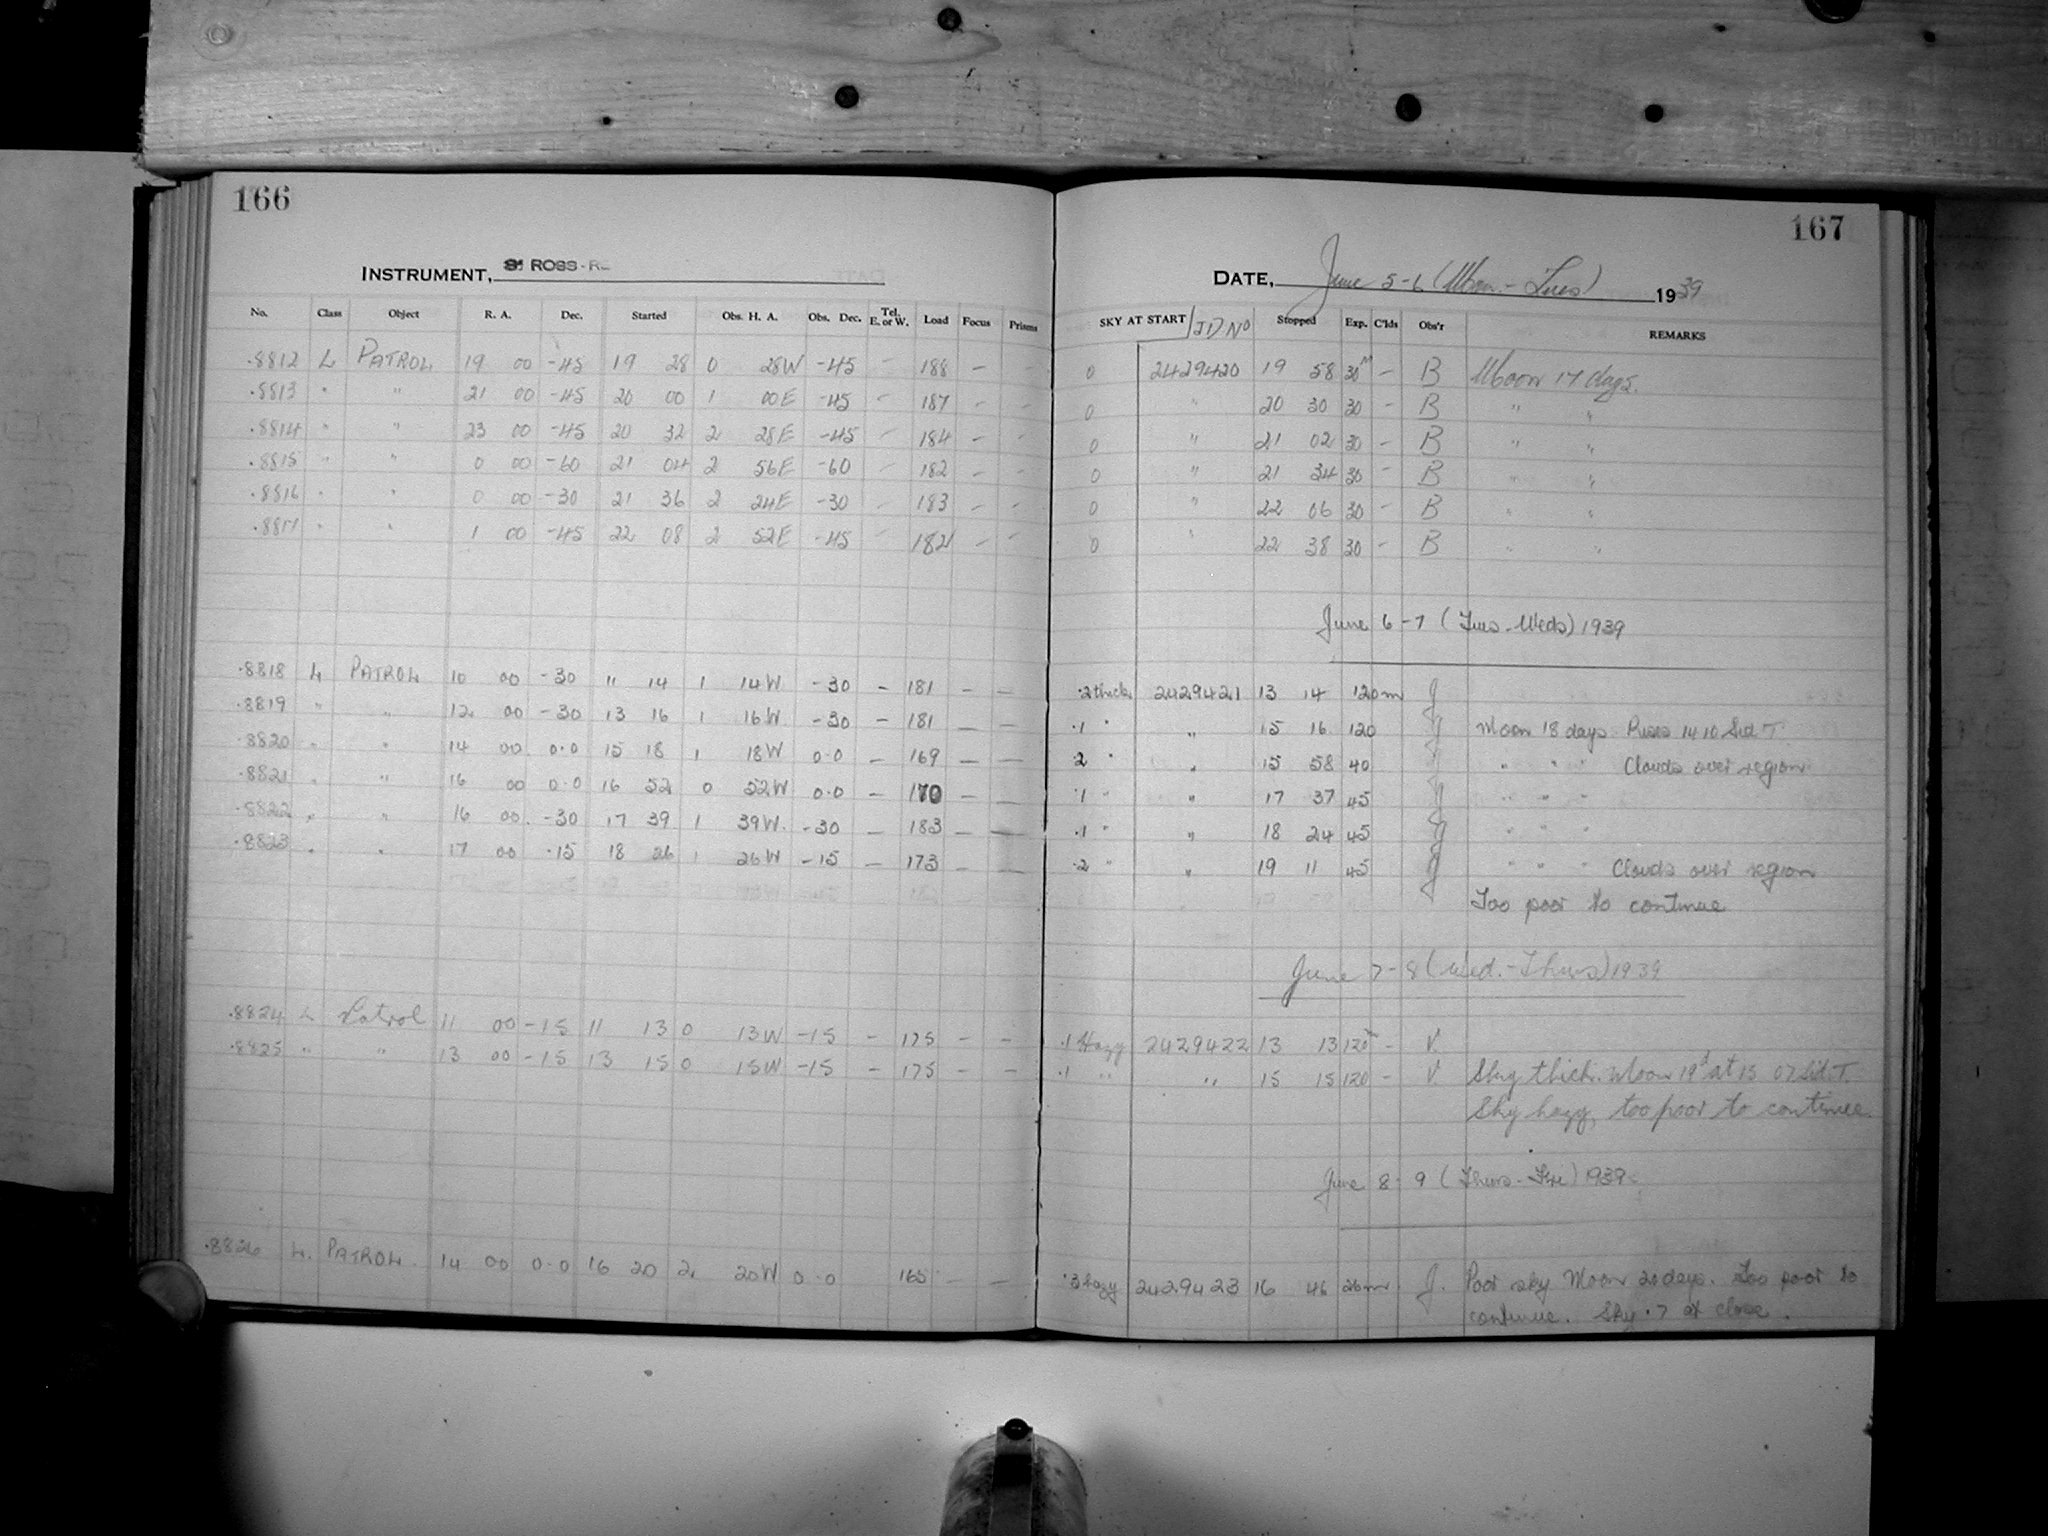 166
INSTRUMENT, ROSS-
No. Class Object R. A. Dec. Started Obs. H. A. Obs. Dec. Tel. E. or W. Load Focus Prisms
.8812 L PATROL 19 00 -45 19 28 0 28W -45 - 188 - -
.8813 " " 21 00 -45 20 00 1 00E -45 - 187 - -
.8814 " " 23 00 -45 20 32 2 28E -45 - 184 - -
.8815 " " 0 00 -60 21 04 2 56E -60 - 182 - -
.8816 " " 0 00 -30 21 36 2 24E -30 - 183 - -
.8817 " " 1 00 -45 22 08 2 52E -45 - 182 - -
.8818 L PATROL 10 00 -30 11 14 1 14W -30 - 181 - -
.8819 " " 12 00 -30 13 16 1 16W -30 - 181 - -
.8820 " " 14 00 0.0 15 18 1 18W 0.0 - 169 - -
.8821 " " 16 00 0.0 16 52 0 52W 0.0 - 170 - -
.8822 " " 16 00 -30 17 39 1 39W. -30 - 183 - -
.8823 " " 17 00 -15 18 26 1 26W -15 - 173 - -
.8824 L Patrol 11 00 -15 11 13 0 13W -15 - 175 - -
.8825 " " 13 00 -15 13 15 0 15W -15 - 175 - -
.8826 L. PATROL. 14 00 0.0 16 20 2 20W 0.0 165 - -
167
DATE, June 5-6 (Mon.-Tues) 1939
SKY AT START JD No Stopped Exp. C'lds Obs'r REMARKS
0 2429420 19 58 30m - B Moon 17 days.
0 " 20 30 30 - B " "
0 " 21 02 30 - B " "
0 " 21 34 30 - B " "
0 " 22 06 30 - B " "
0 " 22 38 30 - B " "
June 6-7 (Tues-Weds) 1939
.2 thick 2429421 13 14 120m J
.1 " " 15 16 120 J Moon 18 days. Rises 14 10 Sid T.
.2 " " 15 58 40 J " " " Clouds over region
.1 " " 17 37 45 J " " "
.1 " " 18 24 45 J " " "
.2 " " 19 11 45 J " " " Clouds over region
Too poor to continue
June 7-8 (Wed.-Thurs) 1939
.1 Hazy 2429422 13 13 120m - V.
.1 " " 15 15 120 - V Sky thick. Moon 19d at 15 07 Sid.T.
Sky hazy, too poor to continue.
June 8-9 (Thurs-Fri) 1939.
.3 hazy 2429423 16 46 26m J. Poor sky Moon 20 days. Too poor to
continue. Sky .7 at close.